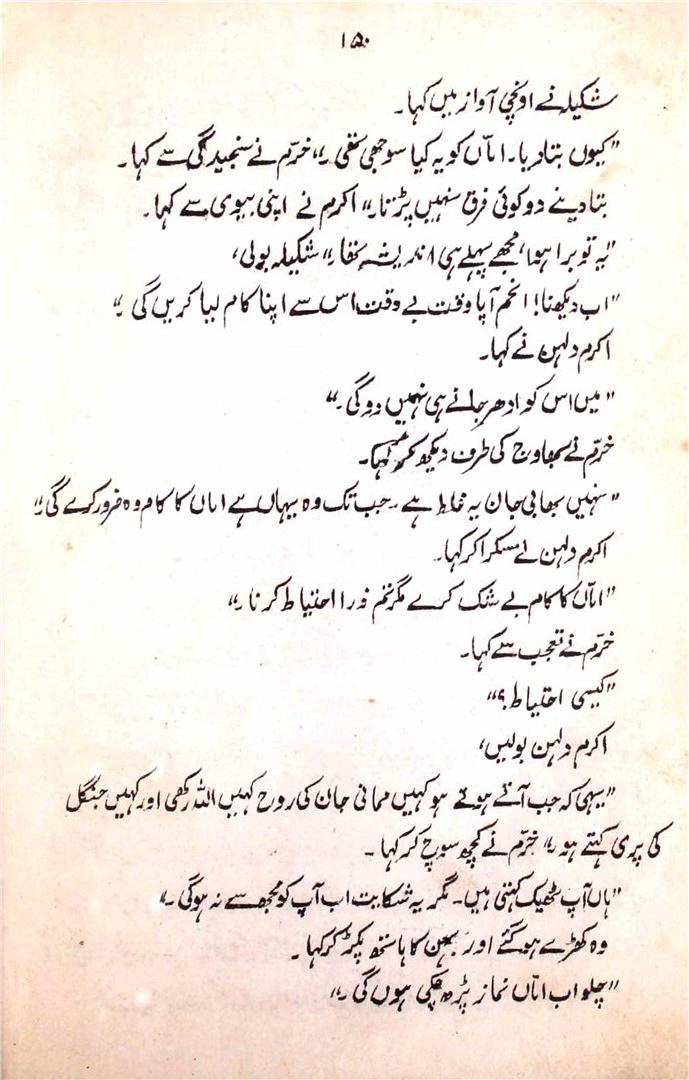 ۱۵۰
شکیلہ نے اونچی آواز میں کہا۔
"کیوں بتا دیا۔ اماں کو یہ کیا سوجھی تھی۔" خرّم نے سنجیدگی سے کہا۔
بتا دینے دو کوئی فرق نہیں پڑتا۔" اکرم نے اپنی بیوی سے کہا۔
"یہ تو برا ہوا، مجھے پہلے ہی اندیشہ تھا۔" شکیلہ بولی،
"اب دیکھنا! انجم آپا وقت بے وقت اس سے اپنا کام لیا کریں گی۔"
اکرم دلہن نے کہا۔
"میں اس کو ادھر جانے ہی نہیں دوگی۔"
خرّم نے بھاوج کی طرف دیکھ کر کہا۔
"نہیں بھابی جان یہ غلط ہے۔ جب تک وہ یہاں ہے اماں کا کام وہ ضرور کرے گی۔"
اکرم دلہن نے مسکرا کر کہا۔
"امّاں کا کام بے شک کرے مگر تم ذرا احتیاط کرنا۔"
خرّم نے تعجب سے کہا۔
"کیسی احتیاط؟"
اکرم دلہن بولیں،
"یہی کہ جب آتے ہوتے ہو کہیں ممانی جان کی روح کہیں اللہ رکھی اور کہیں جنگل
کی پری کہتے ہو۔" خرّم نے کچھ سوچ کر کہا۔
"ہاں آپ ٹھیک کہتی ہیں۔ مگر یہ شکایت اب آپ کو مجھ سے نہ ہوگی۔"
وہ کھڑے ہو گئے اور بہن کا ہاتھ پکڑ کر کہا۔
"چلو اب امّاں نماز پڑھ چکی ہوں گی۔"